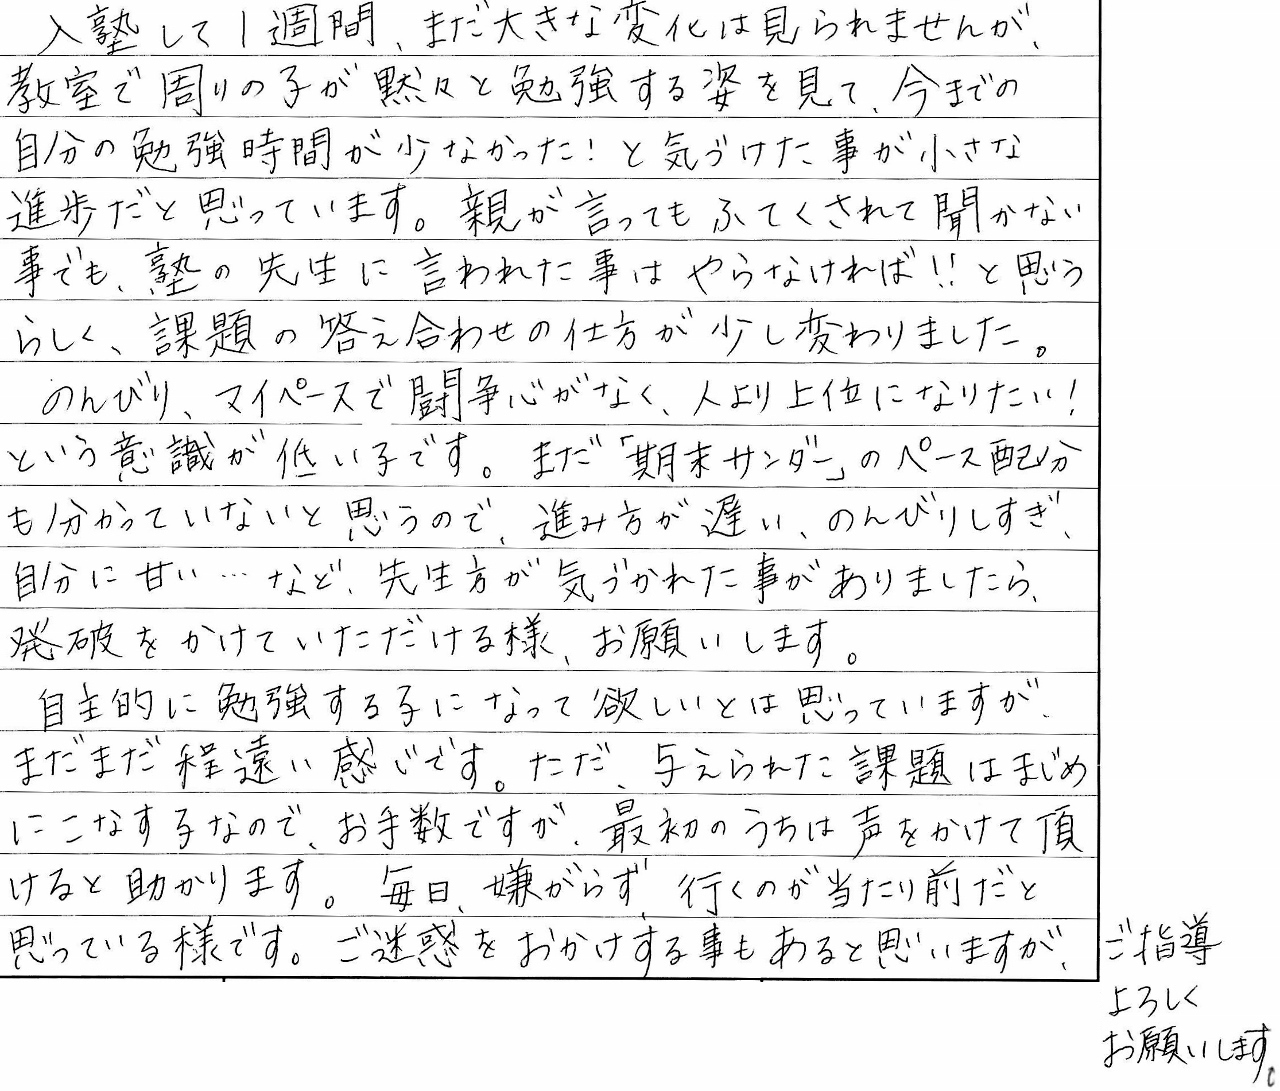 入塾して1週間、まだ大きな変化は見られませんが、
教室で周りの子が黙々と勉強する姿を見て、今までの
自分の勉強時間が少なかった!と気づけた事が小さな
進歩だと思っています。親が言ってもふてくされて聞かない
事でも、塾の先生に言われた事はやらなければ!!と思う
らしく、課題の答え合わせの仕方が少し変わりました。
のんびり、マイペースで闘争心がなく、人より上位になりたい!
という意識が低い子です。まだ「期末サンダー」のペース配分
も分かっていないと思うので、進み方が遅い、のんびりしすぎ、
自分に甘い…など、先生方が気づかれた事がありましたら、
発破をかけていただける様、お願いします。
自主的に勉強する子になって欲しいとは思っていますが、
まだまだ程遠い感じです。ただ、与えられた課題はまじめ
にこなす子なので、お手数ですが、最初のうちは声をかけて頂
けると助かります。毎日、嫌がらず、行くのが当たり前だと
思っている様です。ご迷惑をおかけする事もあると思いますが、
ご指導
よろしく
お願いします。